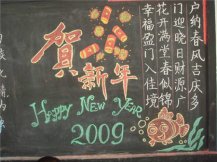 贺新年
Happy New Year
2009
户纳春风吉庆多
门迎晓日财源广
花开满堂春似锦
幸福盈门入佳境